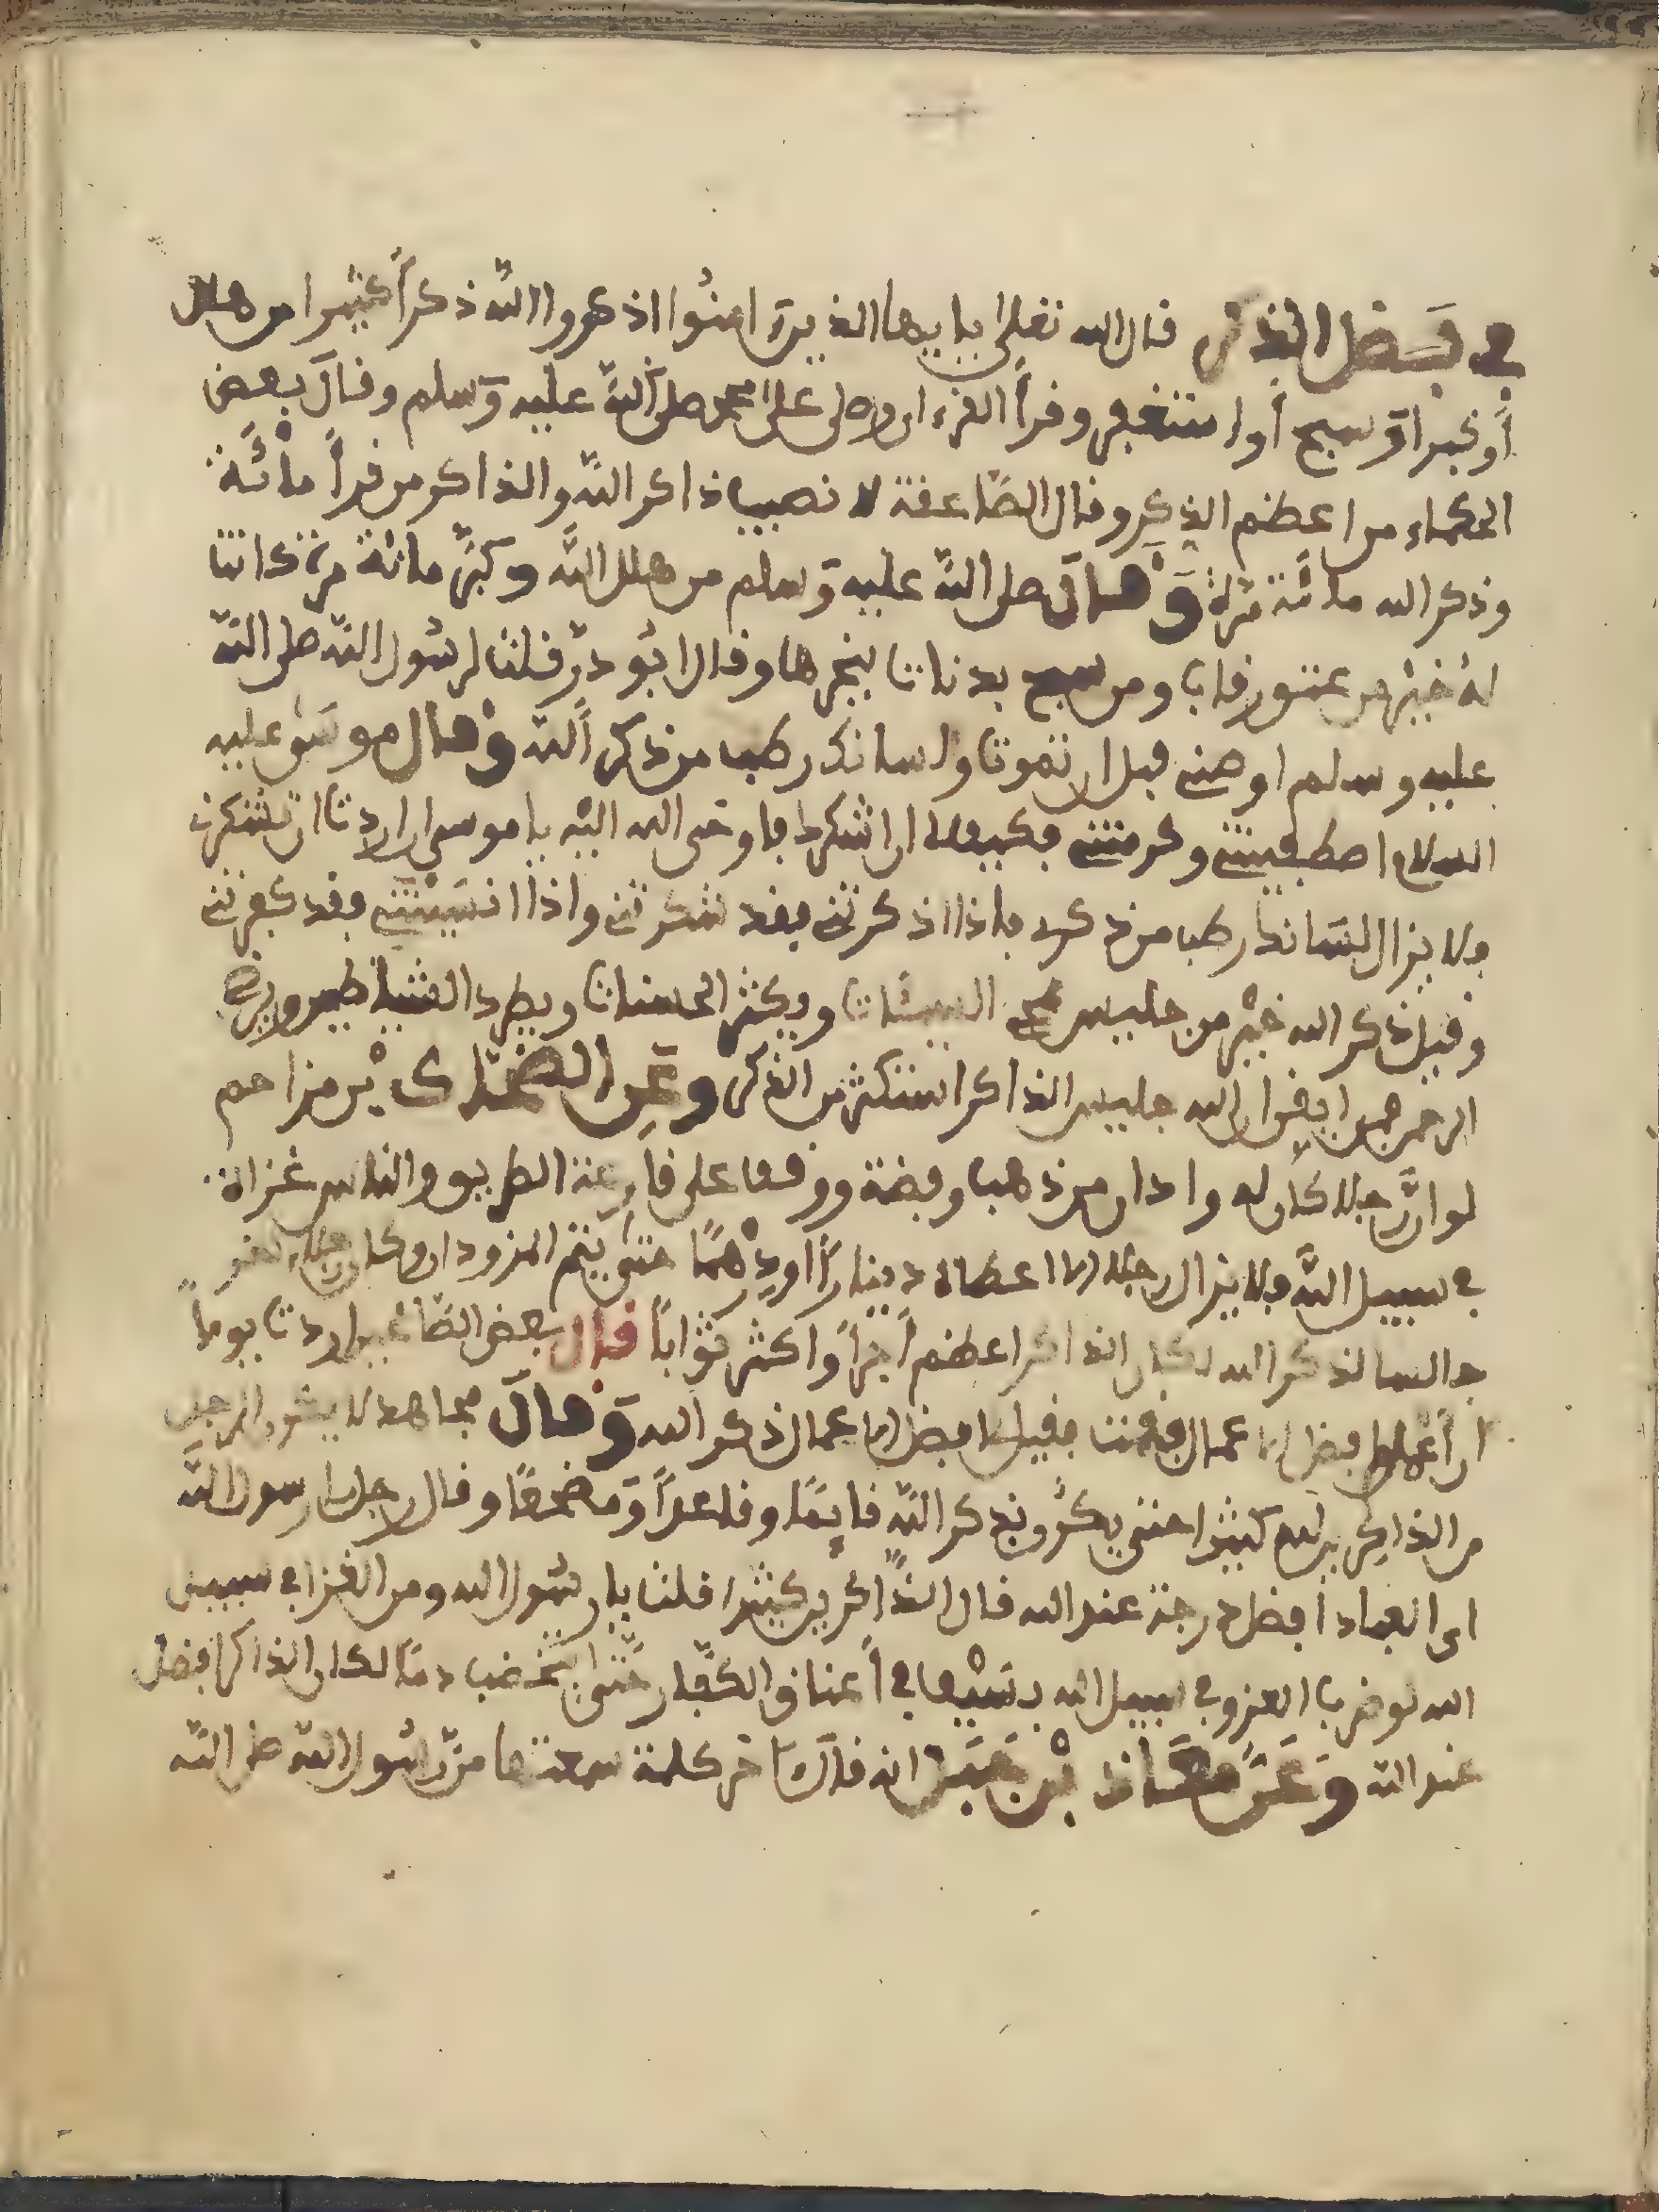 في فضل الذكر قال الله تعلى يايها الذين امنوا اذكروا الله ذكرا كثيرا من هلل
أو كبر او سبح أو استغفر وقرأ القرءان وصلى على محمد صلى الله عليه وسلم وقال بعض
الحكماء من اعظم الذكر وقال الصاعقة لا تصيب ذاكر الله والذاكر من قرأ مائة
وذكر الله مائة مرة وقال صلى الله عليه وسلم من هلل الله وكبر مائة مرة كانت
له خير من عتق رقاب ومن سبع بدنات ينحرها وقال ابو در قلنا لرسول الله صلى الله
عليه وسلم اوصني قبل ان تموت ولسانك رطب من ذكر الله وقال موسى عليه
السلام اصطفيتني وكرمتني فكيف لي ان اشكرك فاوحى الله اليه يا موسى ان اردت ان تشكرني
ولا يزال لسانك رطب من ذكري فاذا اذكرتني فقد شكرتني واذا انسيتني فقد كفرتني
وقيل ذكر الله خير من جليس السيئات ويكثر الحسنات ويطرد الشياطين
الرحمن ان الله جليس الذاكر استكثر من الذكر وعن الضحاك بن مزاحم
لو ان رجلا كان له واد ان من ذهب وفضة ووقف على قارعة الطريق والناس غزاة
في سبيل الله ولا يزال رجلا الا اعطاه دينارا او درهما حتى يتم المزود ان وكان رجلا
جالسا لذكر الله لكان الذاكر اعظم أجرا واكثر ثوابا قال بعض الصالحين اردت يوما
ان أعلم افضل الاعمال فنمت فقيل لي افضل الاعمال ذكر الله وقال مجاهد لا يكون الرجل
من الذاكرين لله كثيرا حتى يكون يذكر الله قايما وقاعدا ومضجعا وقال رجل يا رسول الله
اي العباد أفضل درجة عند الله قال الذاكرين كثيرا قلنا يا رسول الله ومن الغزا في سبيل
الله لو ضرب العزو في سبيل الله بسيف في أعناق الكفار حتى يخضب دما لكان الذاكر افضل
عند الله وعن معاذ بن جبل انه قال اخر كلمة سمعتها من رسول الله صلى الله